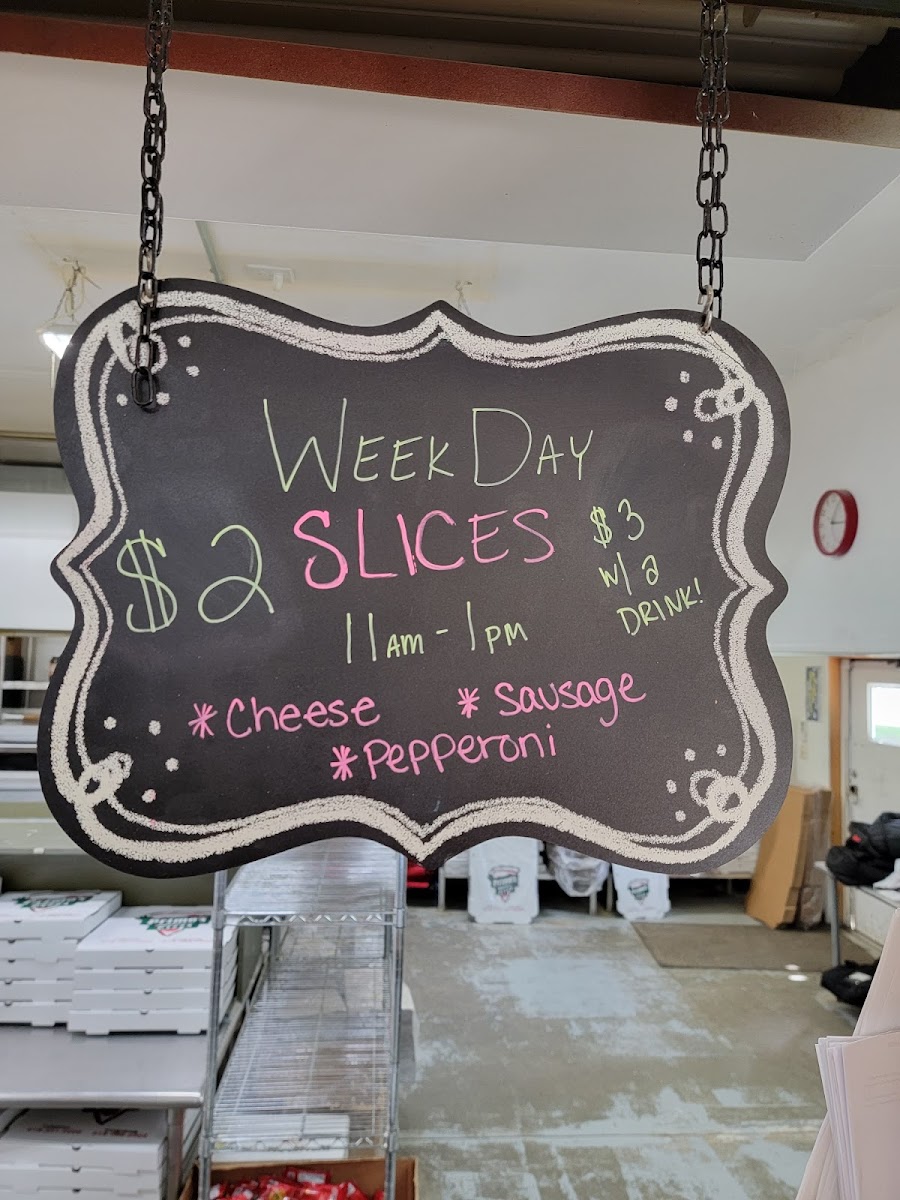 WEEK DAY
$2 SLICES
$3
w/ a
DRINK!
11AM - 1PM
*Cheese * Sausage
*Pepperoni